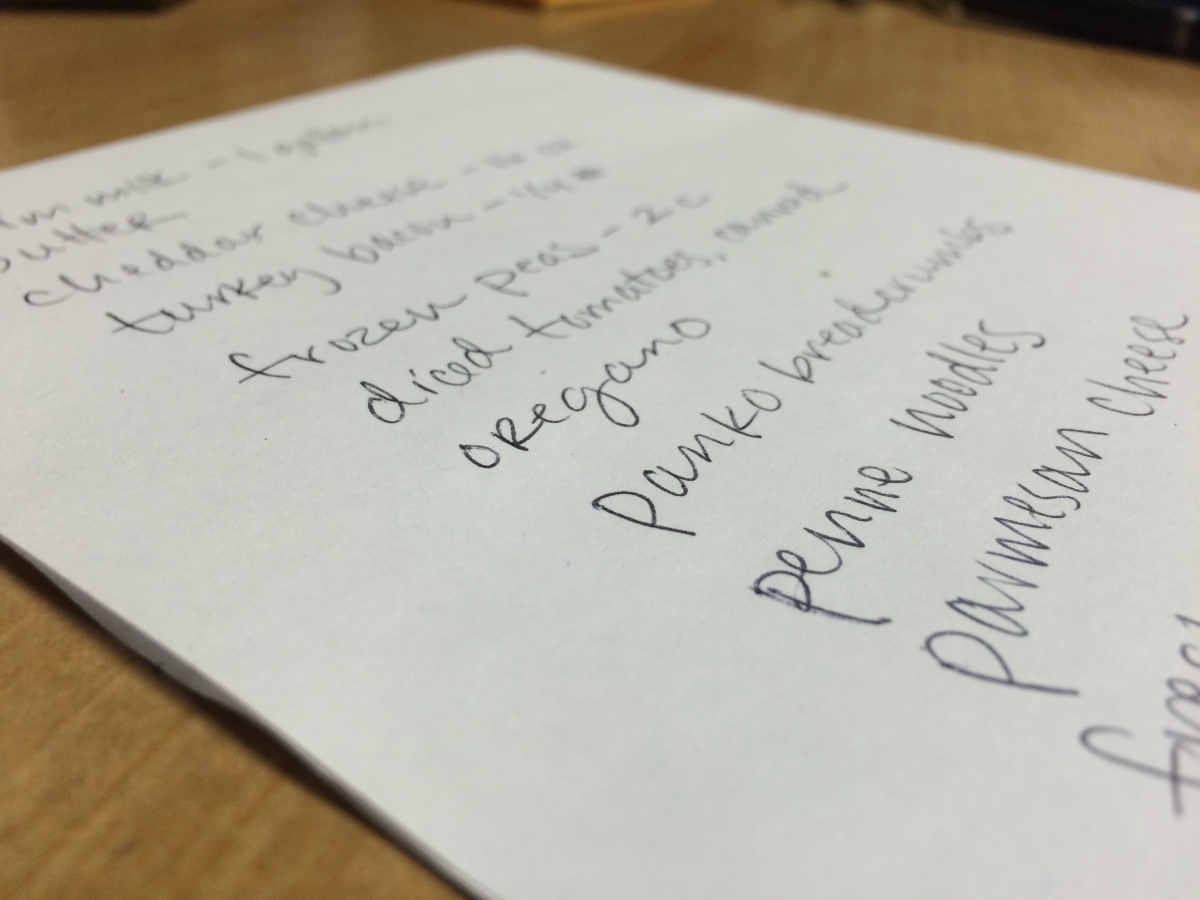 milk - 1 gallon
butter
cheddar cheese - 16 oz
turkey bacon - 1/4 #
frozen peas - 2 c
diced tomatoes, canned
oregano
Panko breadcrumbs
penne noodles
Parmesan cheese